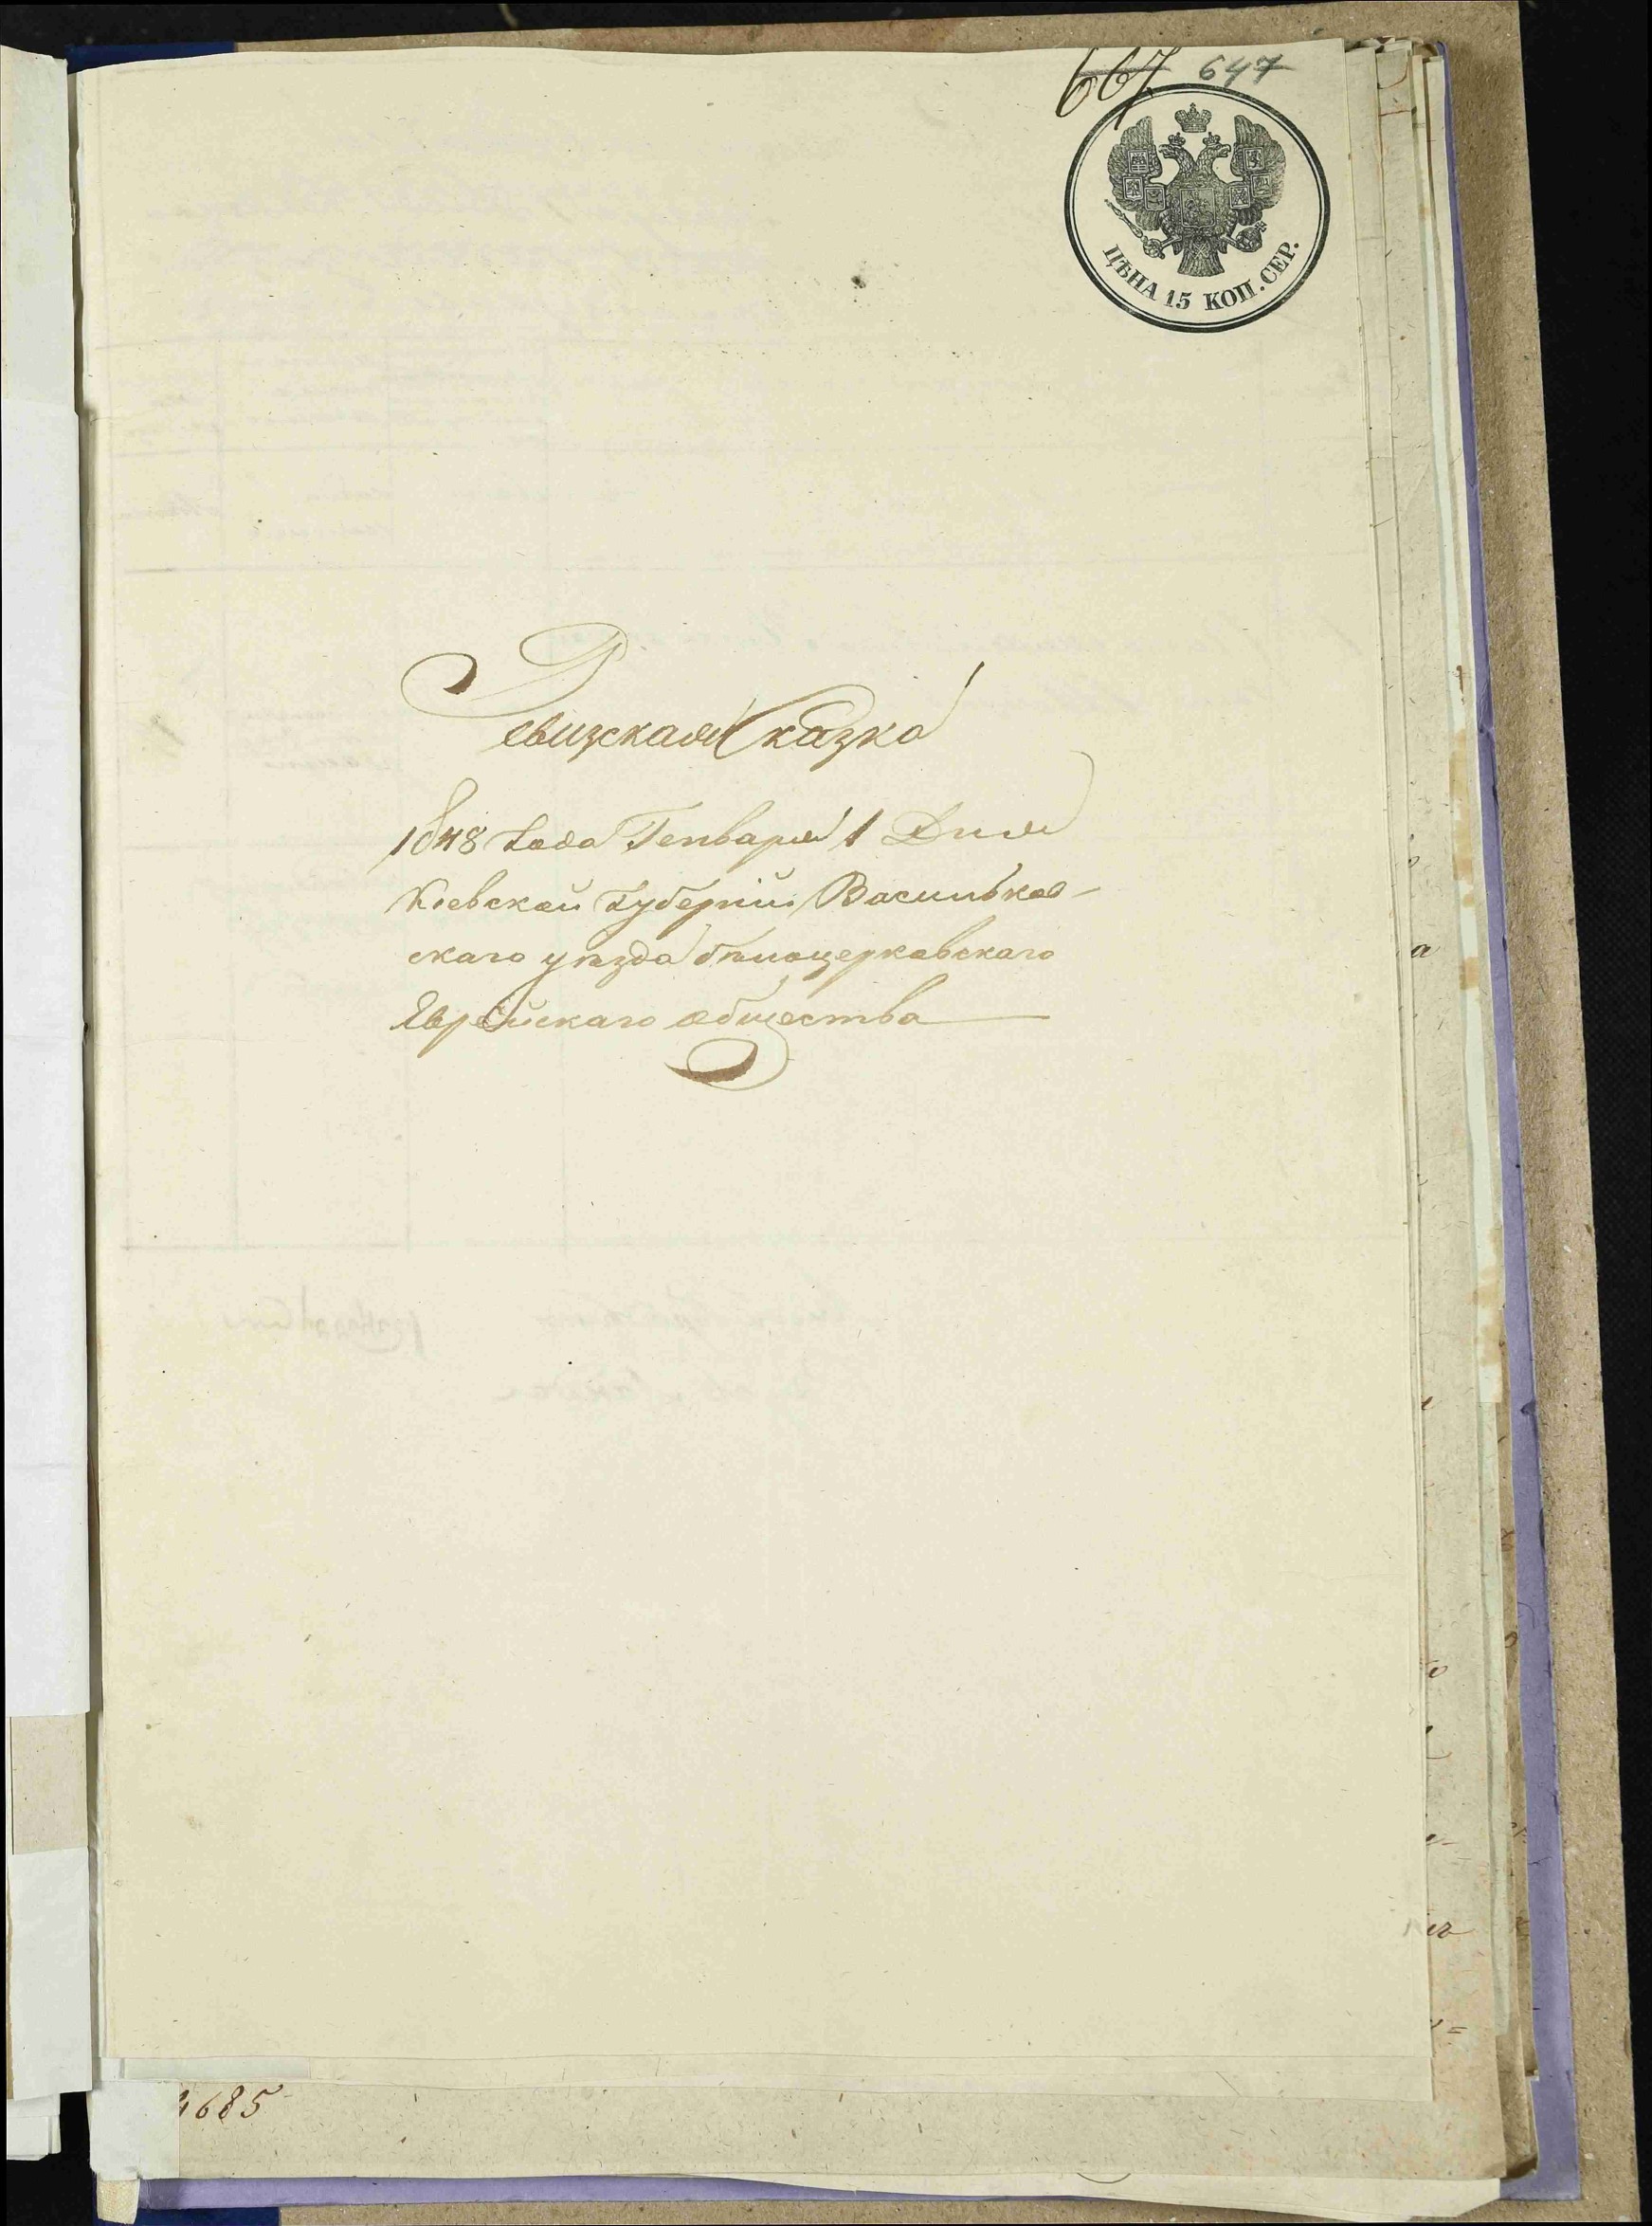 667 647
ЦѢНА 15 КОП. СЕР.
Ревизская Сказка
1848 Года Генваря 1 Дня
Кіевской Губерніи Васильков-
скаго уѣзда бѣлоцерковскаго
Еврейскаго общества
4685